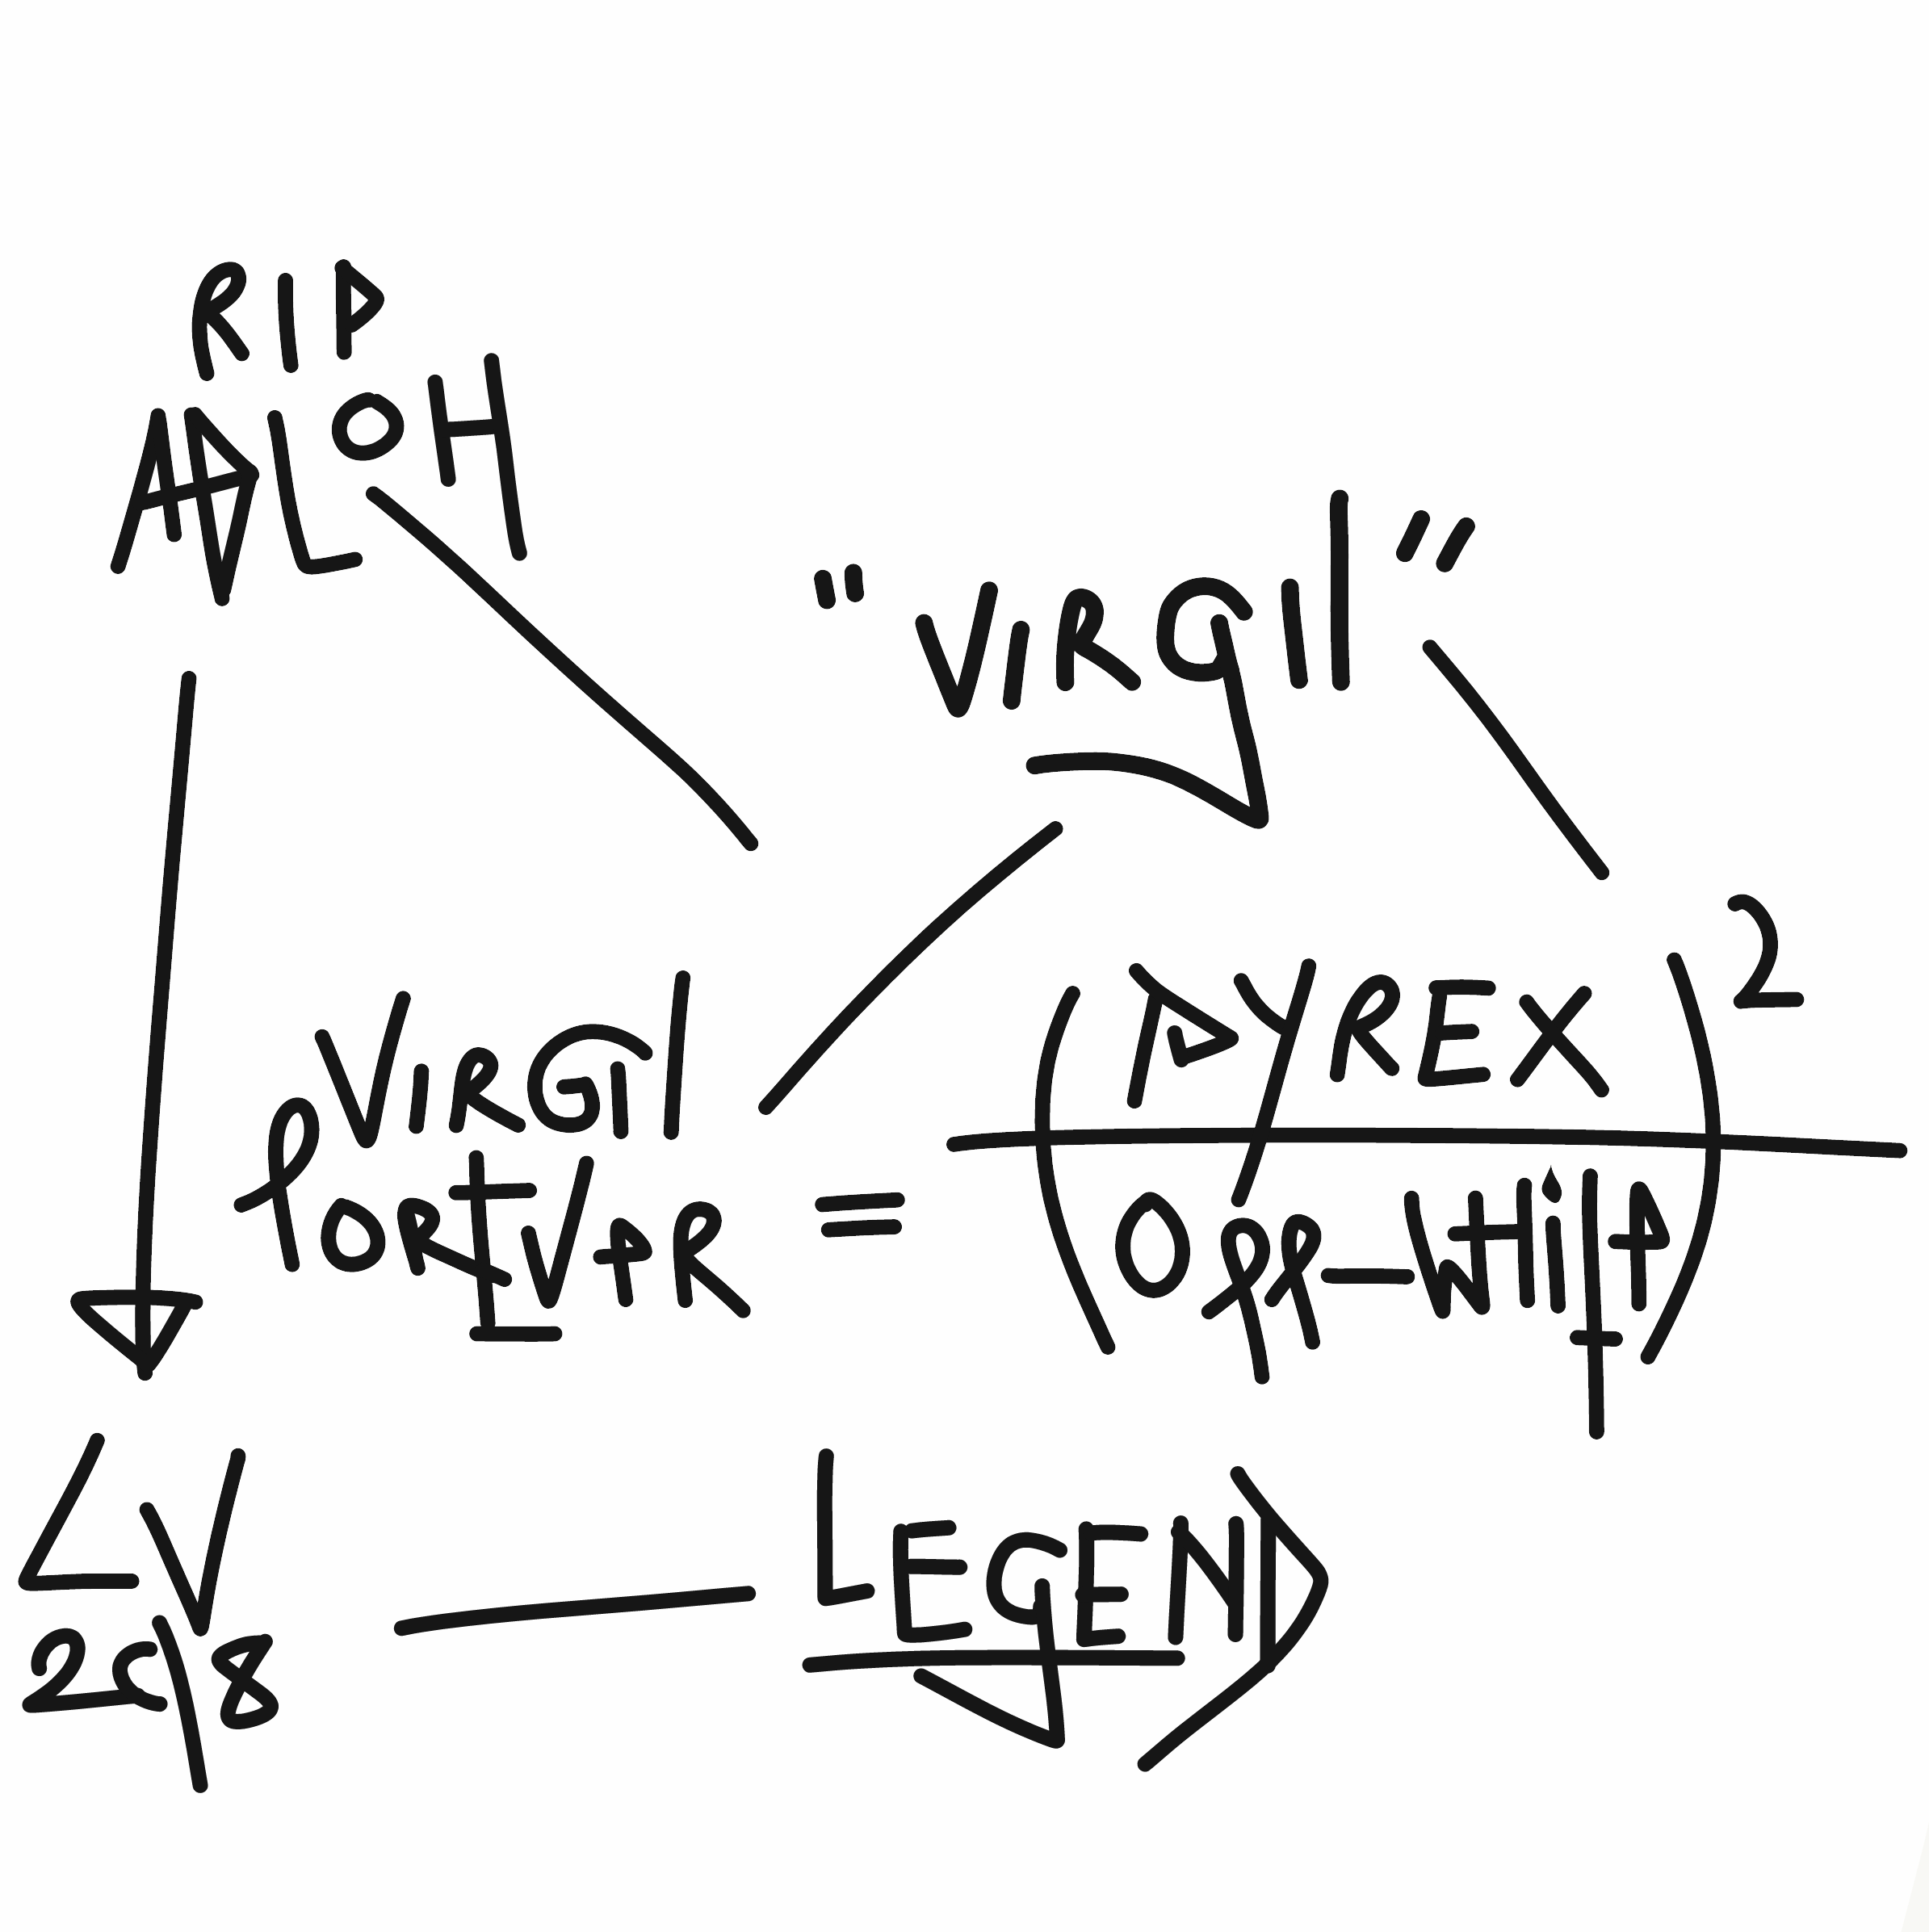 RIP
ABLOH
"VIRgIl"
VIRGIl
PORIVAR = (PYREX)²
OPP-WHITA
LV
2018
LEGEND